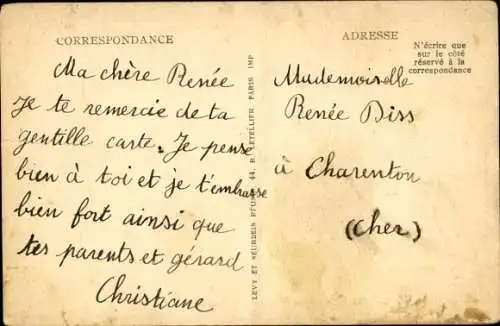 CORRESPONDANCE
Ma chère Renée
Je te remercie de ta
gentille carte. Je pense
bien à toi et je t'embrasse
bien fort ainsi que
tes parents et gérard
Christiane
LEVY ET NEURDEIN RÉUNIS, 44, R. LETELLIER, PARIS IMP
ADRESSE
N'écrire que
sur le côté
réservé à la
correspondance
Mademoiselle
Renée Diss
à Charenton
(Cher)